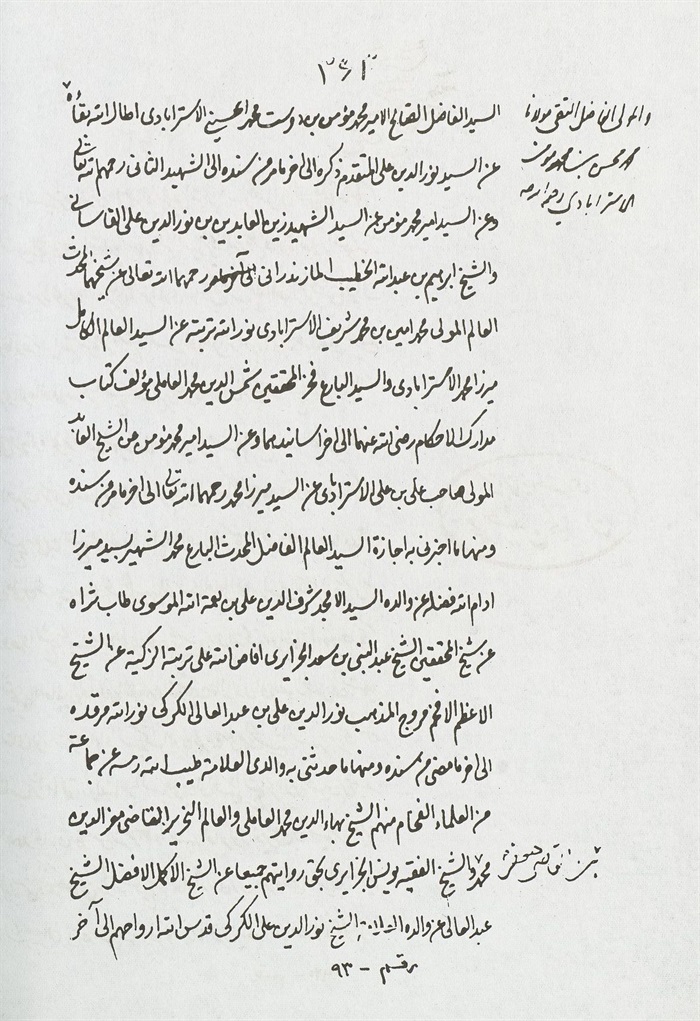 ١٦١
السيد الفاضل الصالح الامير محمد مؤمن بن دوست محمد الحسيني الاسترابادى اطال الله بقاؤه
والمولى الفاضل التقى مولانا
محمد محسن بن محمد مؤمن
الاسترابادي رحمه الله
عن السيد نور الدين على المتقدم ذكره الى اخر ما مر من سنده الى الشهيد الثانى رحمهم الله تعالى
وعن السيد امير محمد مؤمن عن السيد الشهيد زين العابدين بن نور الدين على القاسانى
والشيخ ابرهيم بن عبد الله الخطيب المازندرانى رحمهما الله تعالى عن شيخهما المحدث
العالم المولى محمد امين بن محمد شريف الاسترابادى نور الله تربته عن السيد العالم الكامل
ميرزا محمد الاسترابادى والسيد البارع فخر المحققين شمس الدين محمد العاملى مؤلف كتاب
مدارك الاحكام رضى الله عنهما الى اخر اسانيدهما وعن السيد امير محمد مؤمن عن الشيخ العابد
المولى صاحب على بن على الاسترابادى عن السيد ميرزا محمد رحمهما الله تعالى الى اخر ما مر من سنده
ومنها ما اخبرنى به اجازة السيد العالم الفاضل المحدث البارع محمد الشهير بسيد ميرزا
ادام الله فضله عن والده السيد الامجد شرف الدين على بن نعمة الله الموسوى طاب ثراه
عن شيخ المحققين الشيخ عبد النبى بن سعد الجزايرى افاض الله على تربته الزكية عن الشيخ
الاعظم الافخم مروج المذهب نور الدين على بن عبد العالى الكركى نور الله مرقده
الى اخر ما مضى من سنده ومنها ما حدثنى به والدى العلامة طيب الله رمسه عن جماعة
من العلماء الفخام منهم الشيخ بهاء الدين محمد العاملى والعالم النحرير القاضى معز الدين
محمد والشيخ الفقيه يونس الجزايرى بحق روايتهم جميعا عن الشيخ الاكمل الافضل الشيخ
بن القاضى جعفر
عبد العالى عن والده الشيخ نور الدين على الكركى قدس الله ارواحهم الى آخر
رقم - ٩٣